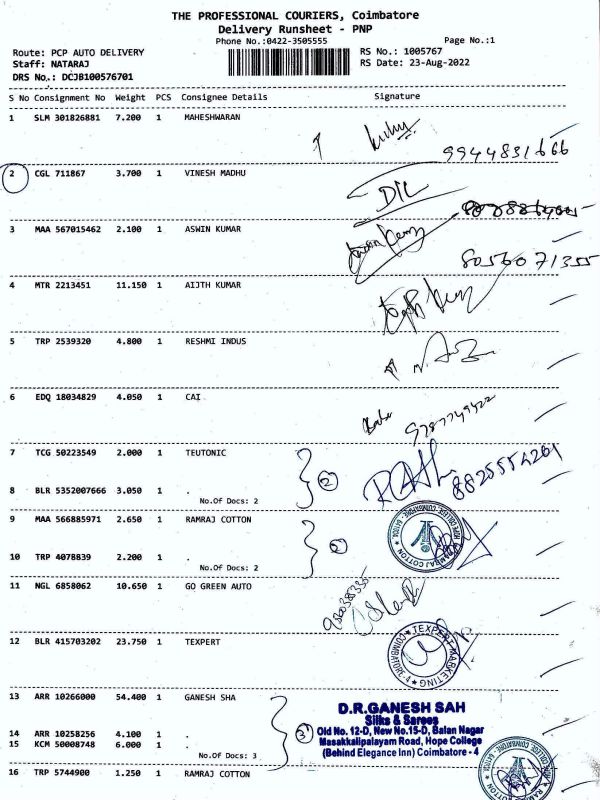 THE PROFESSIONAL COURIERS, Coimbatore
Delivery Runsheet - PNP
Phone No.:0422-3505555
Page No.:1
Route: PCP AUTO DELIVERY
RS No.: 1005767
Staff: NATARAJ
RS Date: 23-Aug-2022
DRS No.: DCJB100576701
S No Consignment No Weight PCS Consignee Details Signature
1 SLM 301826881 7.200 1 MAHESHWARAN
9944831666
2 CGL 711867 3.700 1 VINESH MADHU
3 MAA 567015462 2.100 1 ASWIN KUMAR
8056071355
4 MTR 2213451 11.150 1 AIJTH KUMAR
5 TRP 2539320 4.800 1 RESHMI INDUS
6 EDQ 18034829 4.050 1 CAI
7 TCG 50223549 2.000 1 TEUTONIC
2
8825554261
8 BLR 5352007666 3.050 1 .
No.Of Docs: 2
9 MAA 566885971 2.650 1 RAMRAJ COTTON
2
10 TRP 4078839 2.200 1 .
No.Of Docs: 2
11 NGL 6858062 10.650 1 GO GREEN AUTO
12 BLR 415703202 23.750 1 TEXPERT
TEXPERT MARKETING
COIMBATORE-4
13 ARR 10266000 54.400 1 GANESH SHA
D.R.GANESH SAH
Silks & Sarees
Old No. 12-D, New No.15-D, Balan Nagar
Masakkalipalayam Road, Hope College
(Behind Elegance Inn) Coimbatore - 4
3
14 ARR 10258256 4.100 1 .
15 KCM 50008748 6.000 1 .
No.Of Docs: 3
16 TRP 5744900 1.250 1 RAMRAJ COTTON